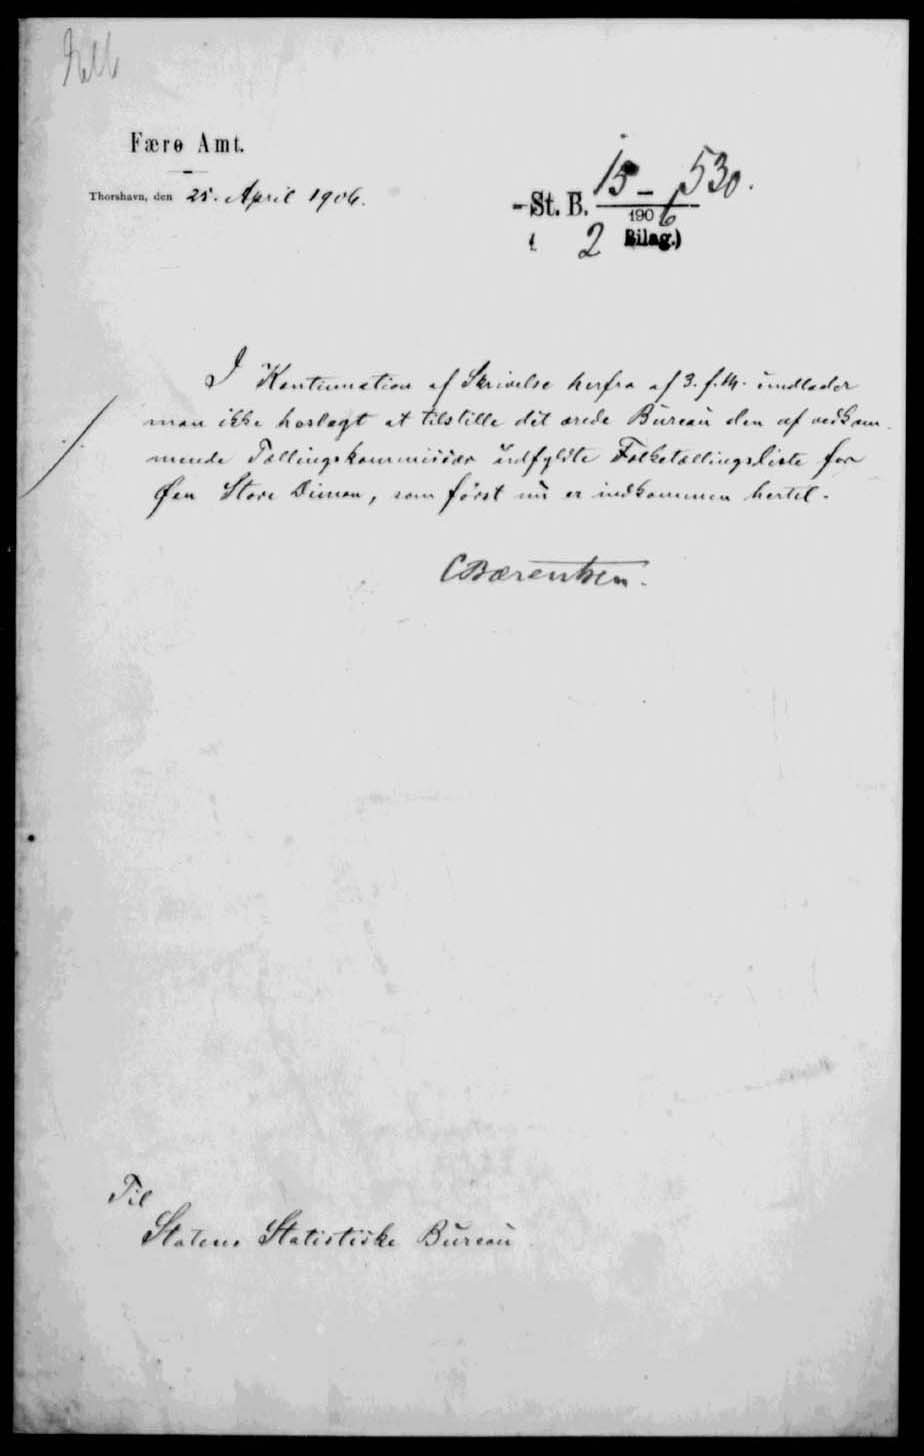 Færø Amt.
Thorshavn, den 25. April 1906.
St. B. 15 - 530.
1906
( 2 Bilag.)
I Kontinuation af Skrivelse herfra af 3. f. M. undlader
man ikke hoslagt at tilstille det ærede Bureau den af vedkom-
mende Tællingskommissær udfyldte Folketællingsliste for
Øen Store Dimon, som først nu er indkommen hertil.
CBærentsen.
Til
Statens Statistiske Bureau